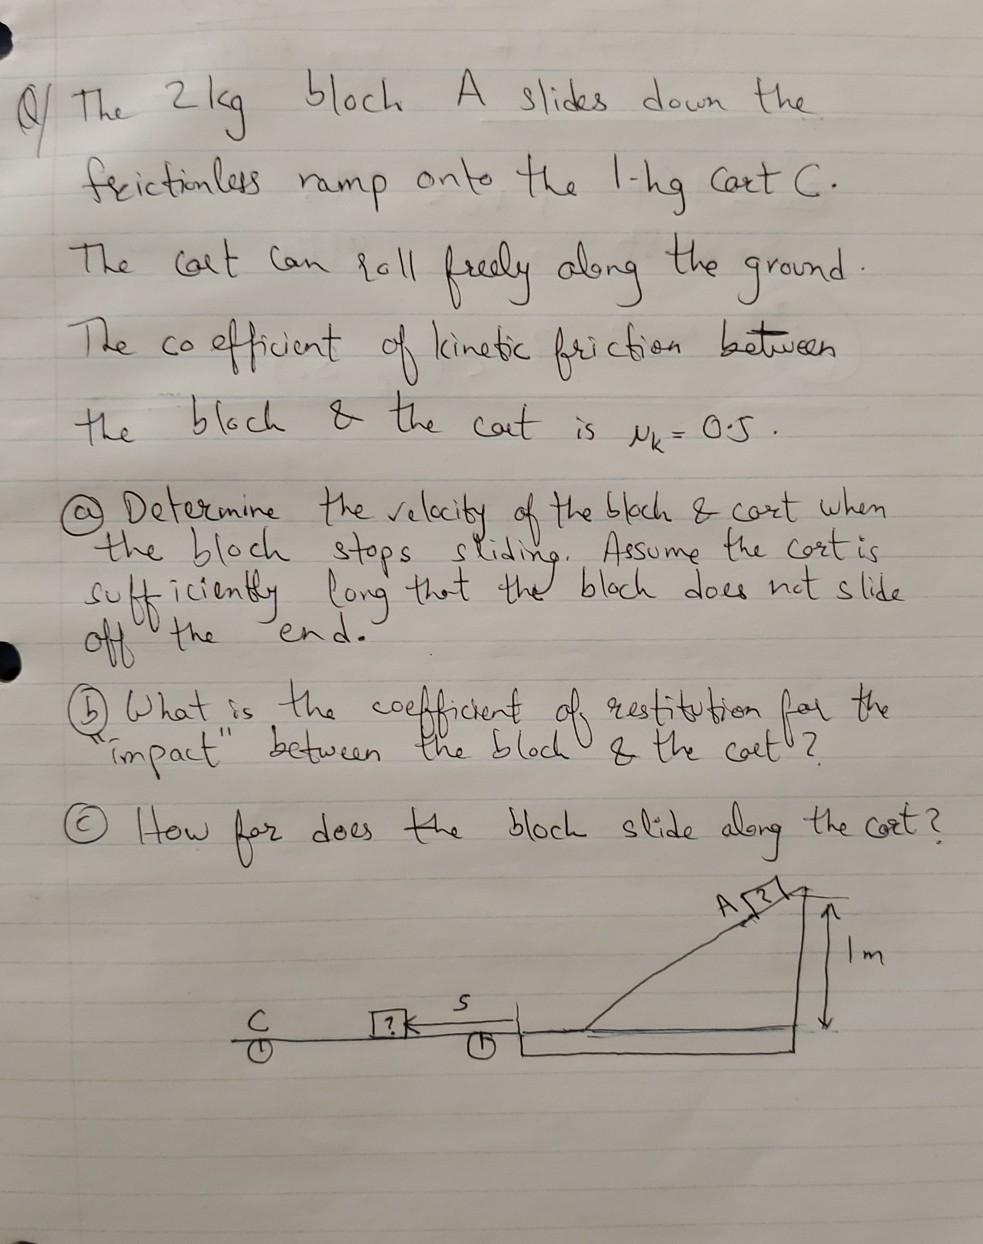 Q/ The 2kg block A slides down the
frictionless ramp onto the 1-kg cart C.
The cart can roll freely along the ground.
The coefficient of kinetic friction between
the block & the cart is μk = 0.5.
(a) Determine the velocity of the block & cart when
the block stops sliding. Assume the cart is
sufficiently long that the block does not slide
off the end.
(b) What is the coefficient of restitution for the
"impact" between the block & the cart?
(c) How far does the block slide along the cart?
A ?
1m
S
C ?